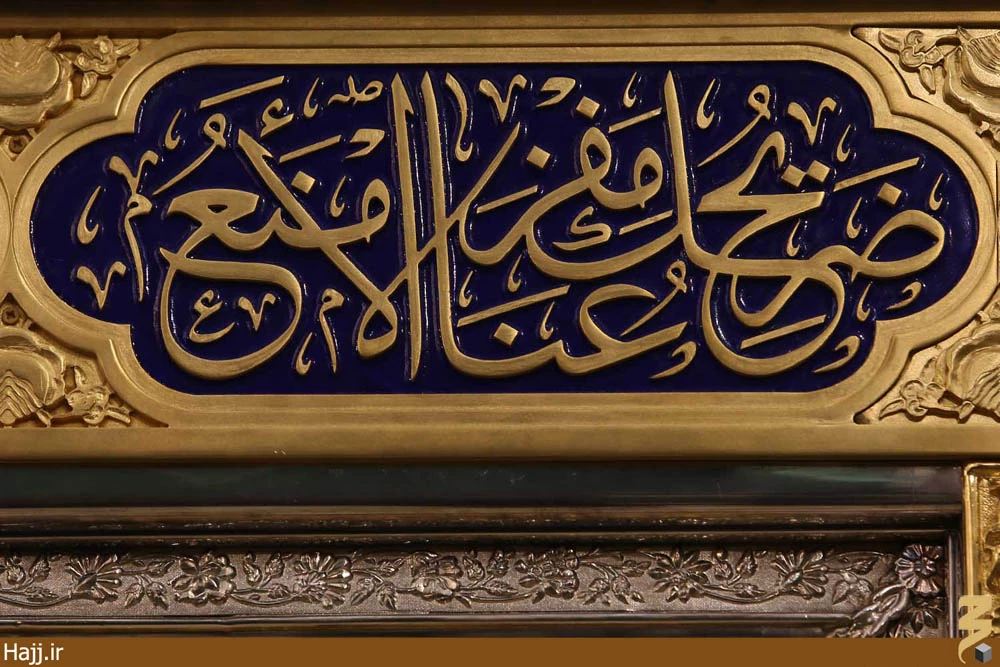 ضريحك مفزعنا الأمنع
Hajj.ir